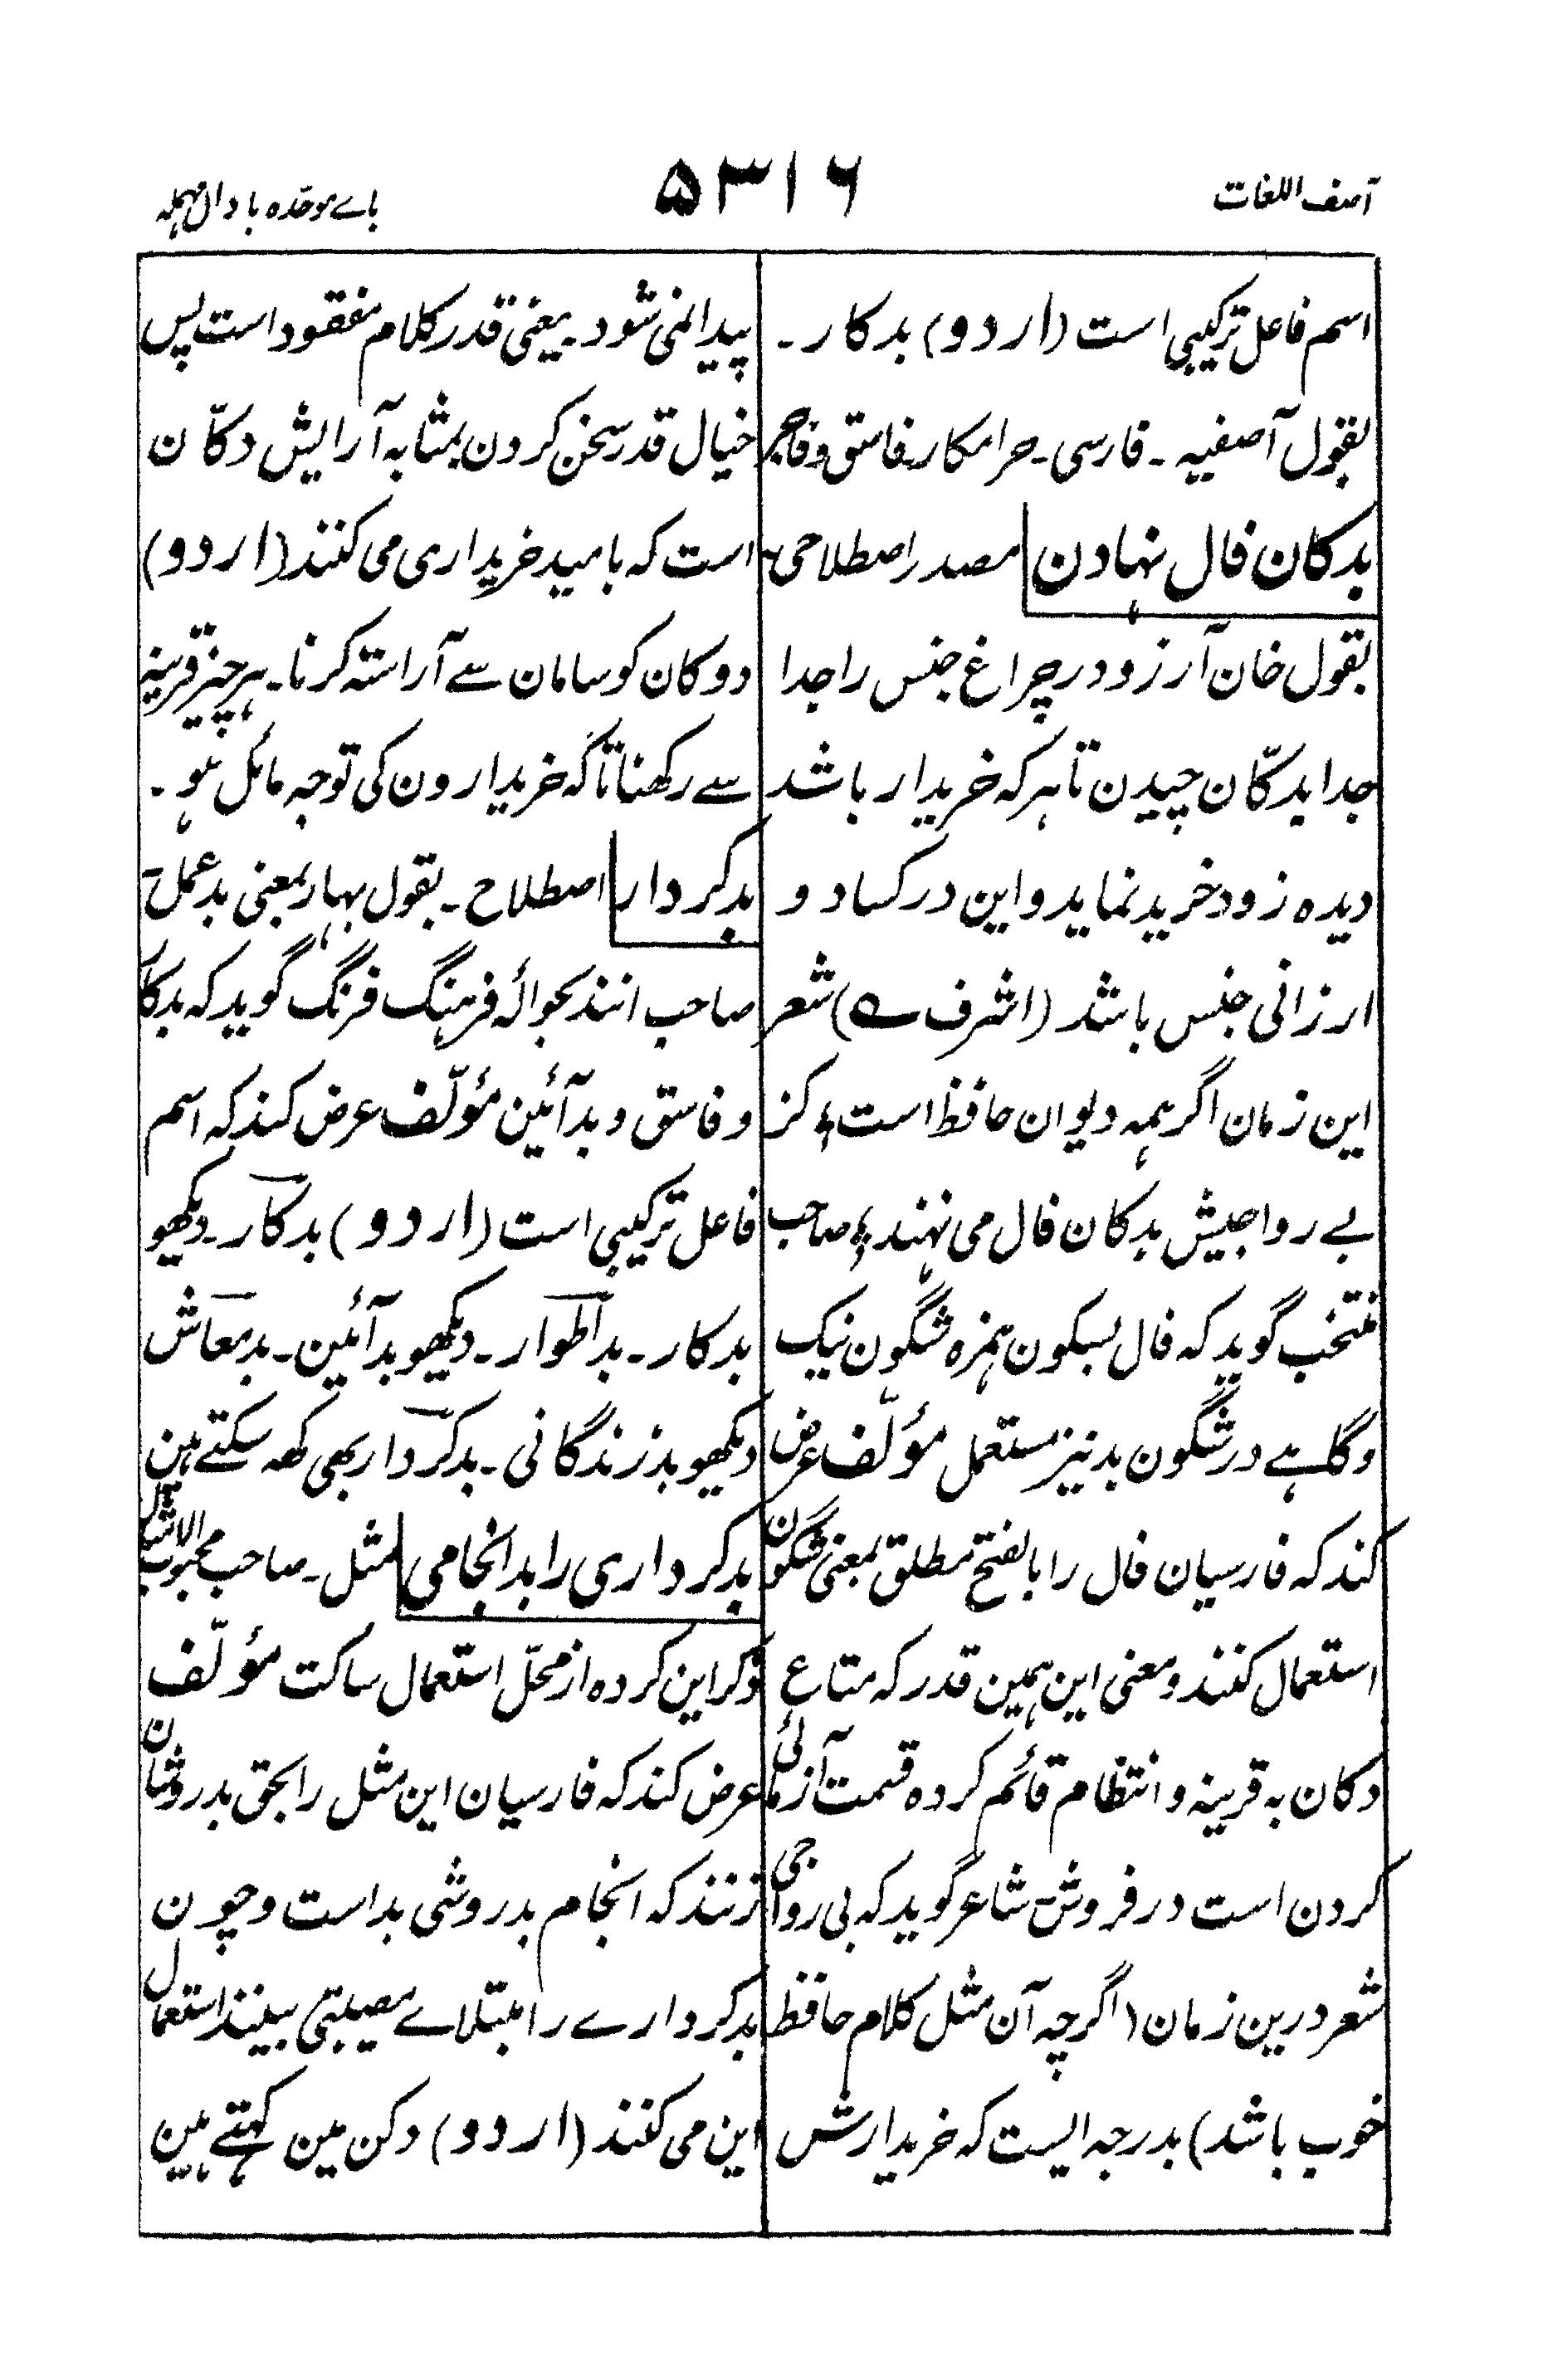 آصف اللغات
۵۳۱۶
باے موحّدہ با دال مہملہ
اسم فاعل ترکیبی است (اردو) بدکار۔
بقول آصفیہ ۔ فارسی۔ حرامکار۔ فاسق و فاجر
بدکان فال نہادن مصدر اصطلاحی۔
بقول خان آرزو در چراغ جنس را جدا
جدا بدکّان چیدن تا ہر کہ خریدار باشد
دیدہ زود خرید نماید و این در کساد و
ارزانی جنس باشد (اشرف ے) شعر
این زمان اگر ہمہ دیوان حافظ است ؛ کز
بے رواجیش بدکان فال می نہند ؛ صاحب
منتخب گوید کہ فال بسکون ہمزہ شگون نیک
و گاہے در شگون بد نیز مستعمل مؤلّف عرض
کند کہ فارسیان فال را بالفتح مطلق بمعنی شگون
استعمال کنند و معنی این ہمین قدر کہ متاع
دکان بہ قرینہ و انتظام قائم کردہ قسمت آزمائی
کردن است در فروش شاعر گوید کہ بی رواجی
شعر درین زمان (اگرچہ آن مثل کلام حافظ
خوب باشد) بدرجہ ایست کہ خریدارش
پیدا نمی شود۔ یعنی قدر کلام مفقود است پس
خیال قدر سخن کردن بمثابہ آرایش دکّان
است کہ بامید خریداری می کنند (اردو)
دوکان کو سامان سے آراستہ کرنا۔ ہر چیز قرینہ
سے رکھنا تاکہ خریدارون کی توجہ مائل ہو۔
بدکردار اصطلاح ۔ بقول بہار بمعنی بدعمل۔
صاحب انند بحوالۂ فرہنگ فرنگ گوید کہ بدکار
و فاسق و بدآئین مؤلّف عرض کند کہ اسم
فاعل ترکیبی است (اردو) بدکار۔ دیکھو
بدکار۔ بداطوار۔ دیکھو بدآئین۔ بدمعاش
دیکھو بدزندگانی۔ بدکردار بھی کہہ سکتے ہین
بدکرداری را بدانجامی مثل۔ صاحب محبوب الامثال
ذکر این کردہ از محلّ استعمال ساکت مؤلّف
عرض کند کہ فارسیان این مثل را بحق بدروشان
زنند کہ انجام بدروشی بد است و چون
بدکردارے را مبتلاے مصیبتی بینند استعمال
این می کنند (اردو) دکن مین کہتے ہین